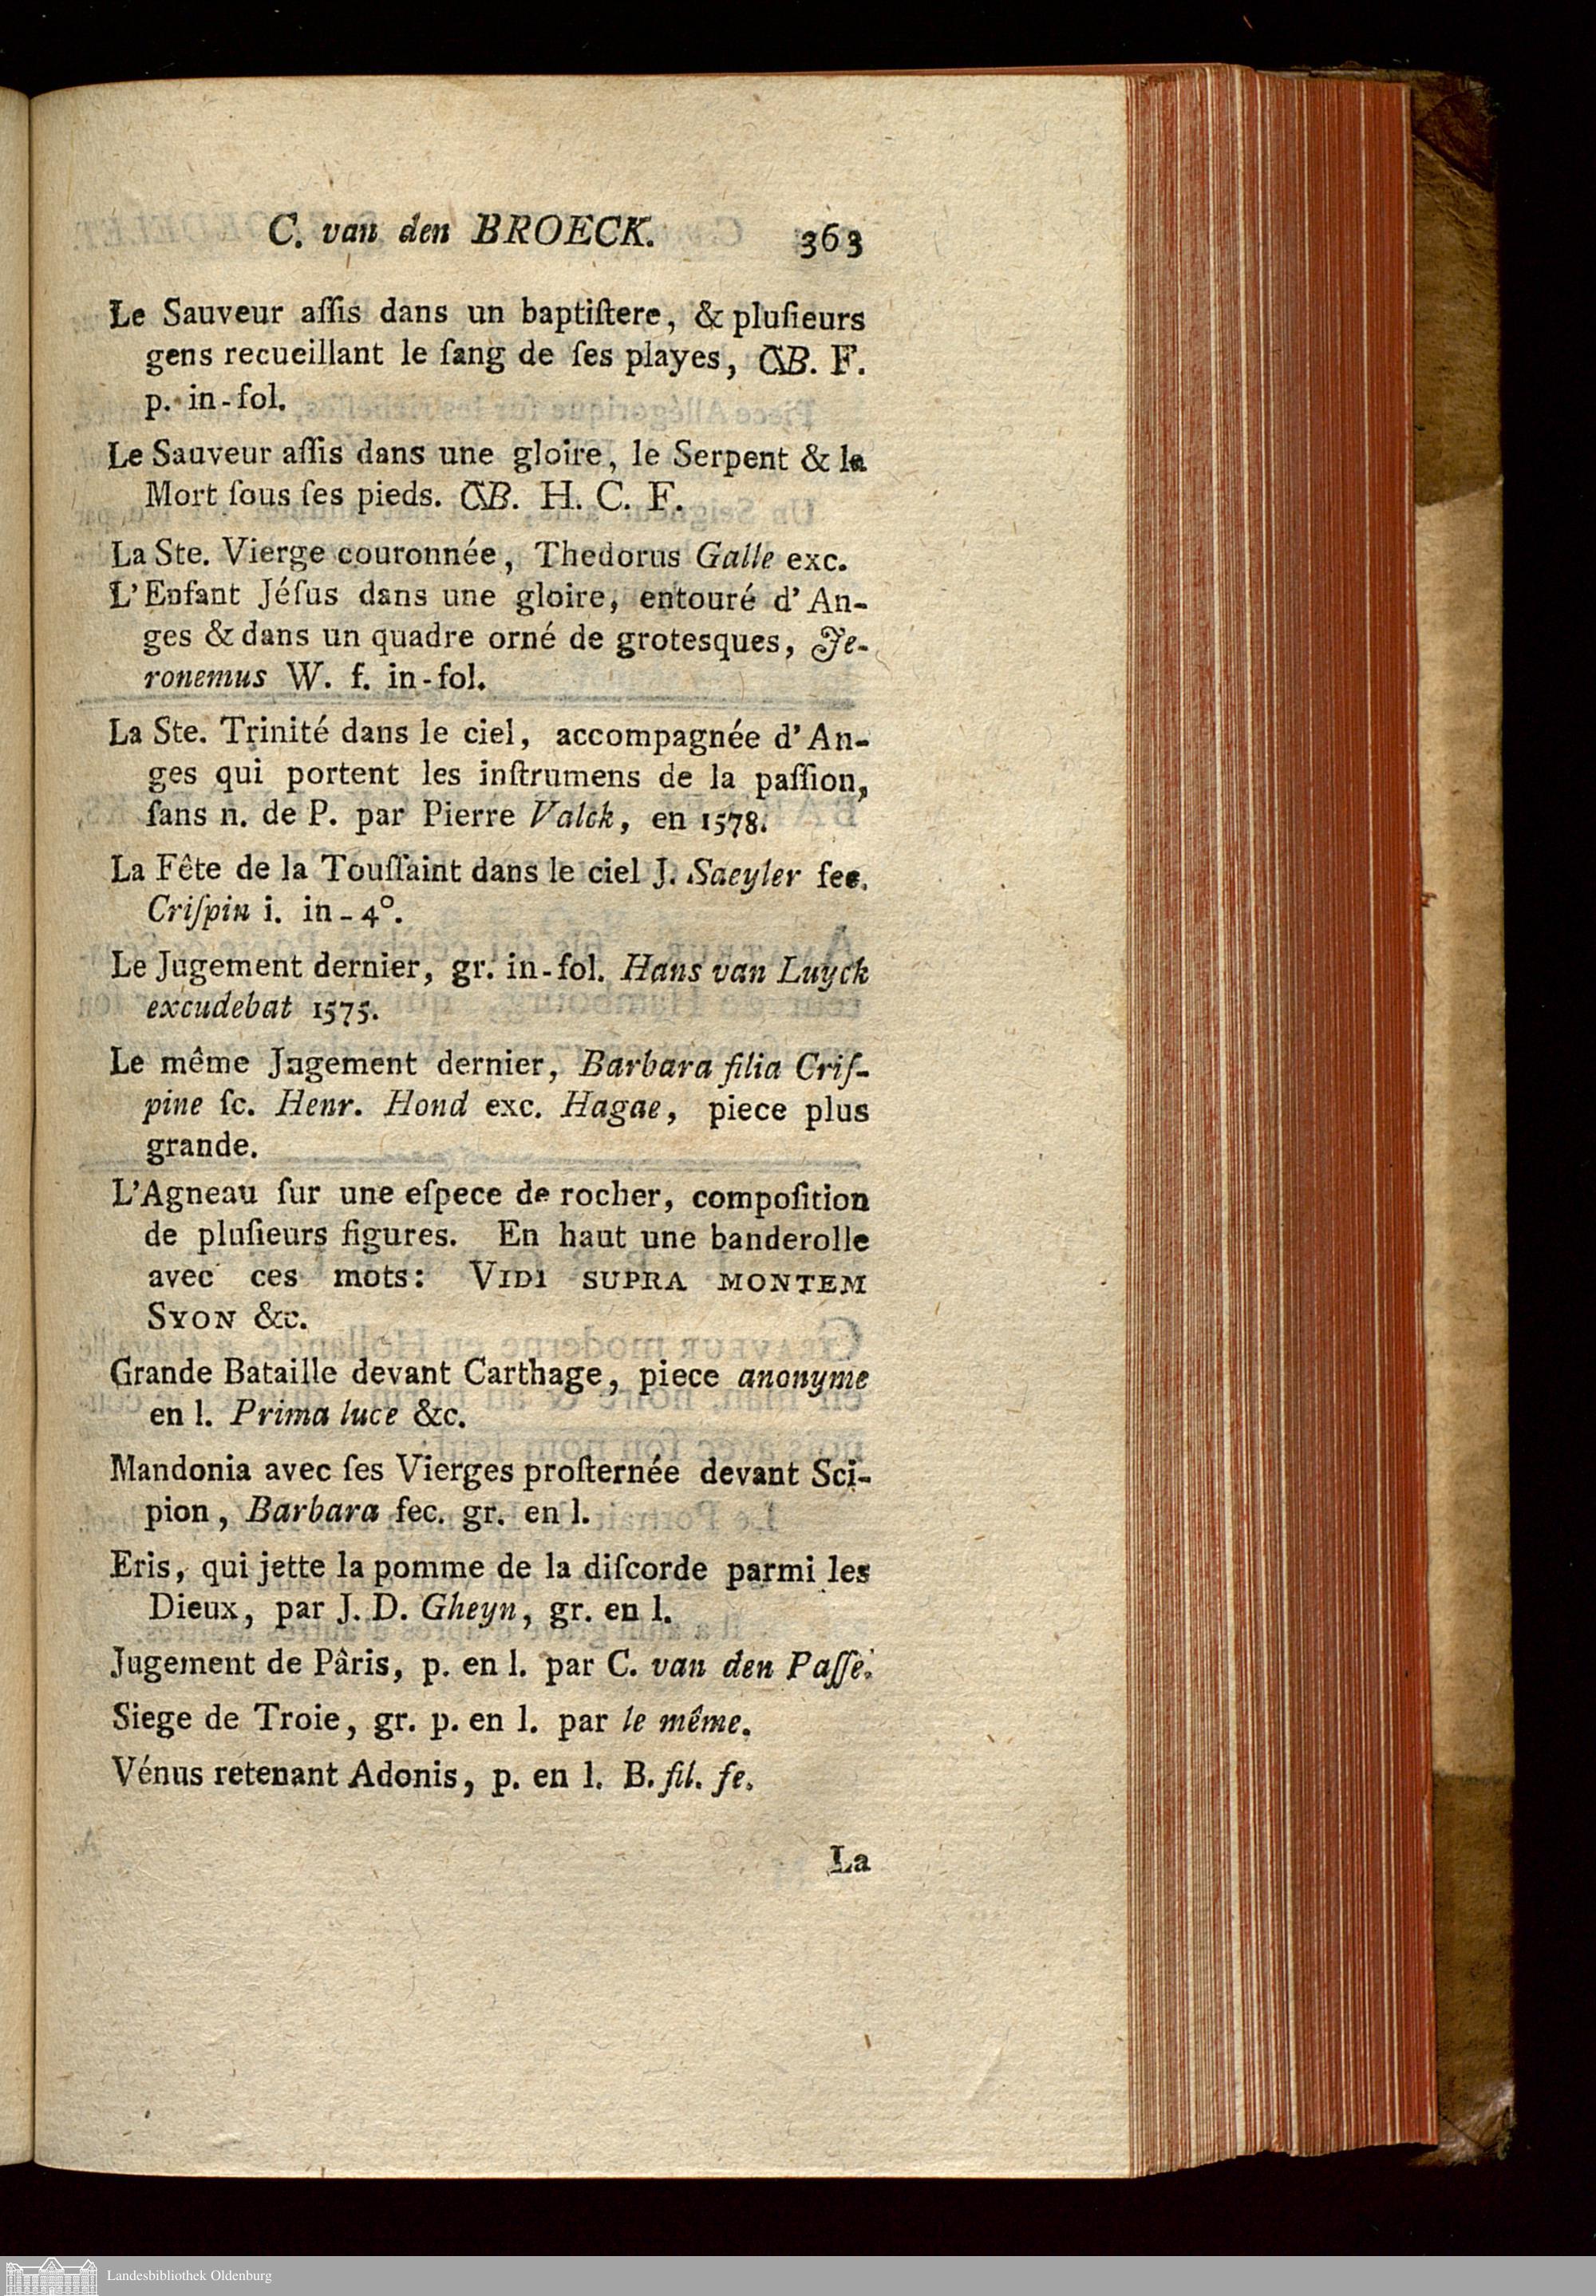 C. van den BROECK. 363
Le Sauveur aſſis dans un baptiſtere, & pluſieurs
gens recueillant le ſang de ſes playes, CB. F.
p. in-fol.
Le Sauveur aſſis dans une gloire, le Serpent & la
Mort ſous ſes pieds. CB. H. C. F.
La Ste. Vierge couronnée, Thedorus Galle exc.
L'Enfant Jéſus dans une gloire, entouré d'An-
ges & dans un quadre orné de grotesques, Je-
ronemus W. f. in-fol.
La Ste. Trinité dans le ciel, accompagnée d'An-
ges qui portent les inſtrumens de la paſſion,
ſans n. de P. par Pierre Valck, en 1578.
La Fête de la Touſſaint dans le ciel J. Saeyler fec.
Criſpin i. in-4°.
Le Jugement dernier, gr. in-fol. Hans van Luyck
excudebat 1575.
Le même Jugement dernier, Barbara filia Criſ-
pine ſc. Henr. Hond exc. Hagae, piece plus
grande.
L'Agneau ſur une eſpece de rocher, compoſition
de pluſieurs figures. En haut une banderolle
avec ces mots: VIDI SUPRA MONTEM
SYON &c.
Grande Bataille devant Carthage, piece anonyme
en l. Prima luce &c.
Mandonia avec ſes Vierges proſternée devant Sci-
pion, Barbara fec. gr. en l.
Eris, qui jette la pomme de la diſcorde parmi les
Dieux, par J. D. Gheyn, gr. en l.
Jugement de Pâris, p. en l. par C. van den Paſſe.
Siege de Troie, gr. p. en l. par le même.
Vénus retenant Adonis, p. en l. B. fil. fe.
La
Landesbibliothek Oldenburg